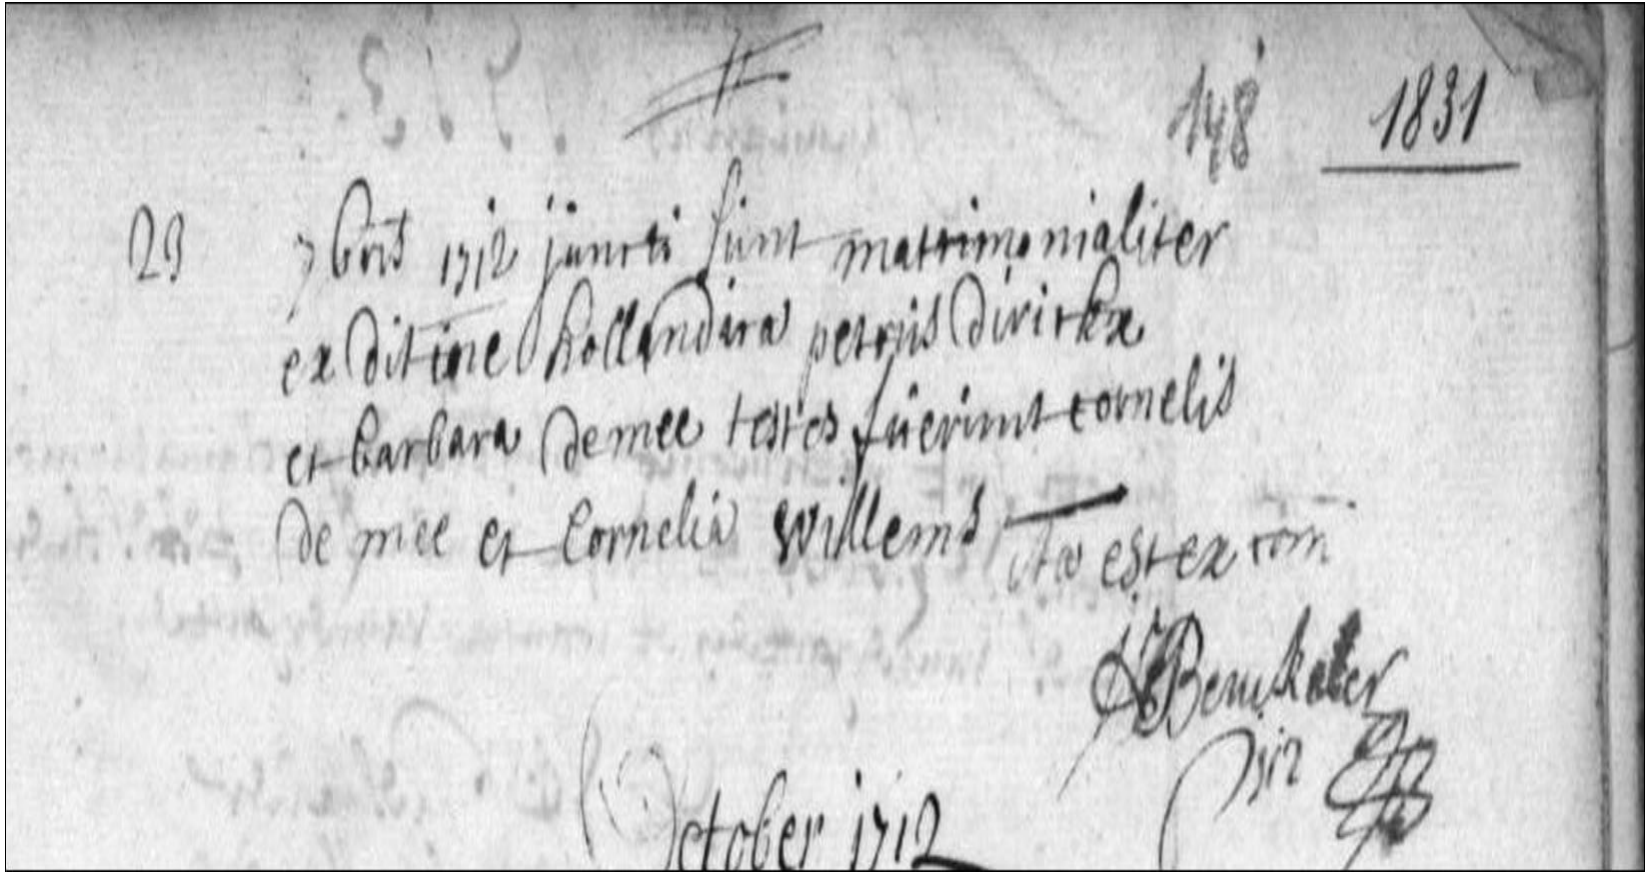 148 1831
29 7bris 1712 juncti sunt matrimonialiter
ex ditione hollandica petrus dirickx
et barbara de mee testes fuerunt cornelis
de mee et Cornelia Willems
ita est ex com
1712
October 1712